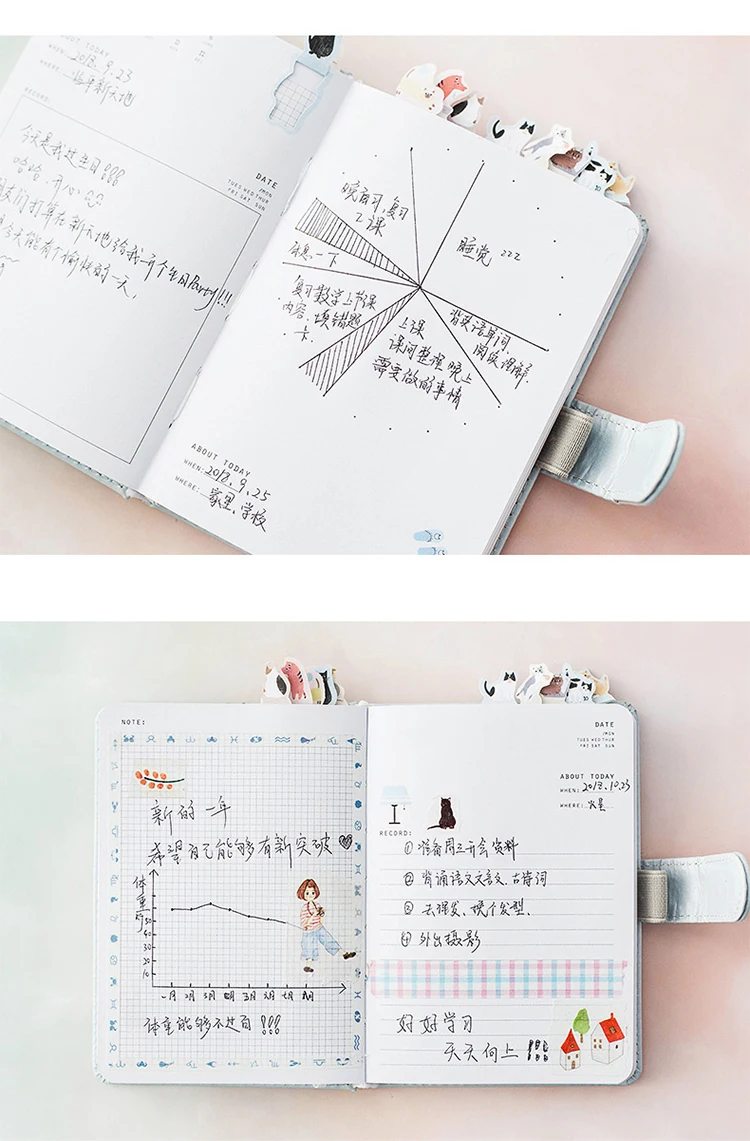 ABOUT TODAY
WHEN: 2018.9.23
WHERE: 新天地
RECORD:
DATE
/MON
TUES WED THUR
FRI SAT SUN
今天是我过生日!!!
哈哈、开心
打算在新天地给我开个生日Party!!!
今天能有个愉快的一天.
晚自习,复习
2课
睡觉 zzz
休息一下
复习数学上节课
内容、填错题
卡.
上课
课间整理晚上
需要做的事情
背英语单词.
阅读理解.
ABOUT TODAY
WHEN: 2018.9.25
WHERE: 家里、学校
NOTE:
新的一年
希望自己能够有新突破
体重
50
40
30
20
10
一月 2月 三月 四月 五月 六月 七月 八月
体重能够不过百!!!
DATE
/MON
TUES WED THUR
FRI SAT SUN
ABOUT TODAY
WHEN: 2018.10.23
WHERE: 火星
RECORD:
① 准备周三开会资料
② 背诵语文文言文、古诗词
③ 去理发、换个发型、
④ 外出摄影
好好学习
天天向上!!!